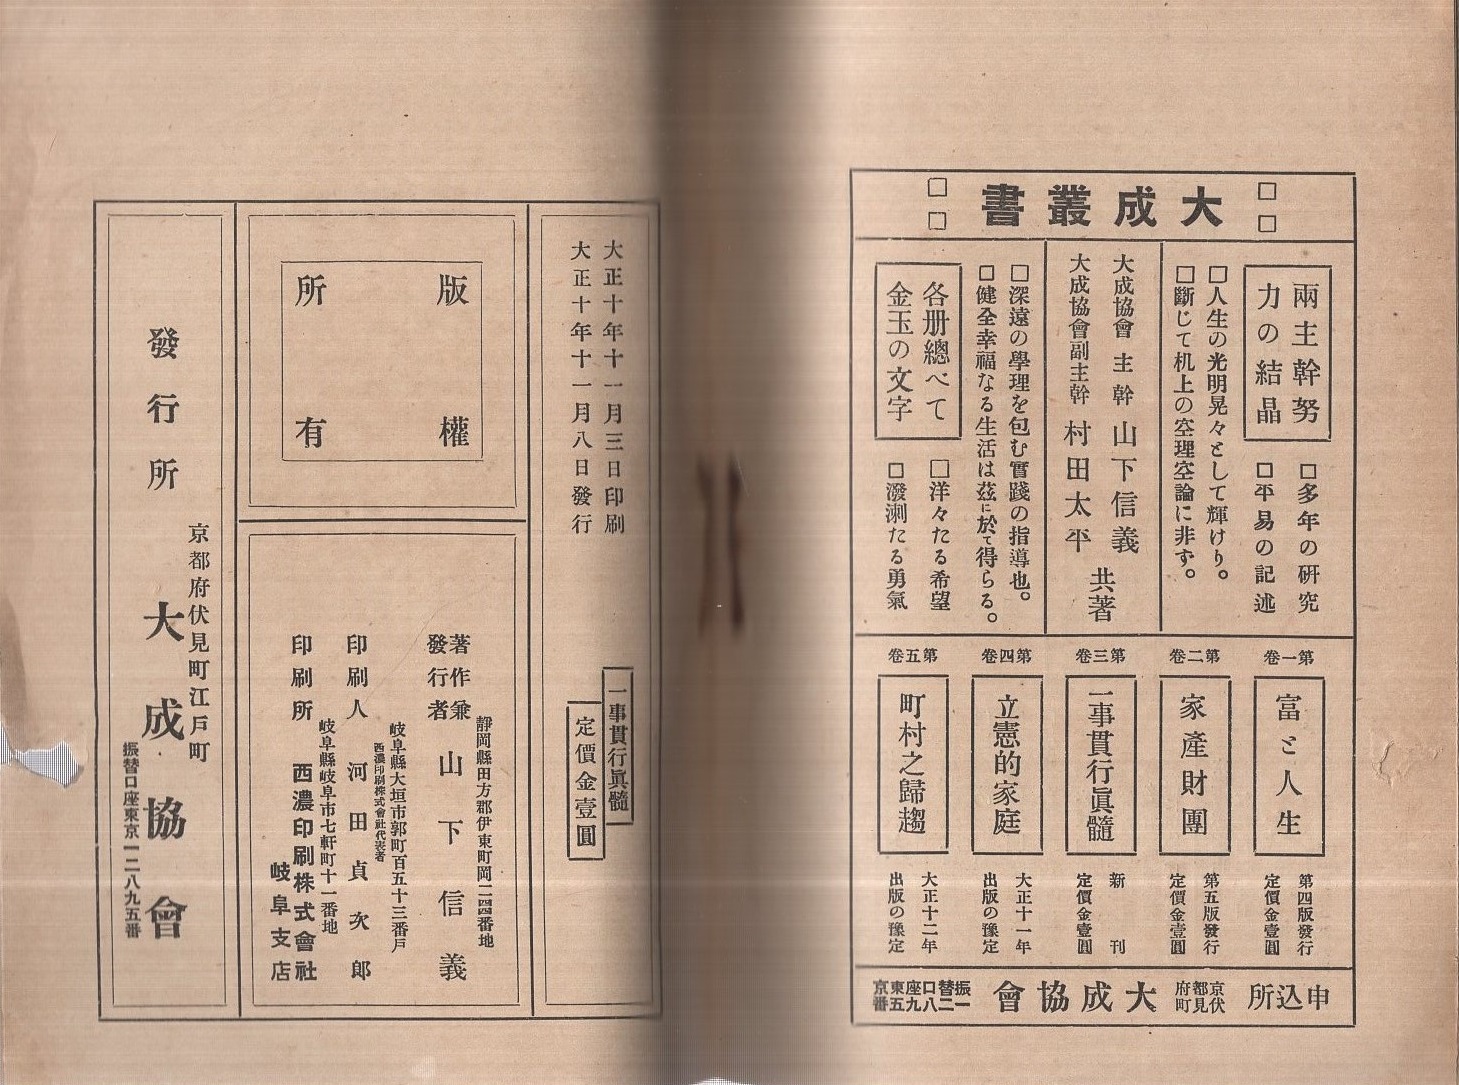 大成叢書
兩主幹努
力の結晶
□多年の研究
□平易の記述
□人生の光明晃々として輝けり。
□斷じて机上の空理空論に非ず。
大成協會 主幹 山下信義
大成協會副主幹 村田太平
共著
□深遠の學理を包む實踐の指導也。
□健全幸福なる生活は茲に於て得らる。
各册總べて
金玉の文字
□洋々たる希望
□潑溂たる勇氣
第一卷
富と人生
第四版發行
定價金壹圓
第二卷
家產財團
第五版發行
定價金壹圓
第三卷
一事貫行眞髓
新刊
定價金壹圓
第四卷
立憲的家庭
大正十一年
出版の豫定
第五卷
町村之歸趨
大正十二年
出版の豫定
申込所
京都府
伏見町
大成協會
振替口座東京
一二八九五番
大正十年十一月三日印刷
大正十年十一月八日發行
一事貫行眞髓
定價金壹圓
版權
所有
靜岡縣田方郡伊東町岡二四四番地
著作兼
發行者
山下信義
岐阜縣大垣市郭町百五十三番戶
西濃印刷株式會社代表者
印刷人 河田貞次郎
岐阜縣岐阜市七軒町十一番地
印刷所 西濃印刷株式會社
岐阜支店
京都府伏見町江戶町
發行所 大成協會
振替口座東京一二八九五番